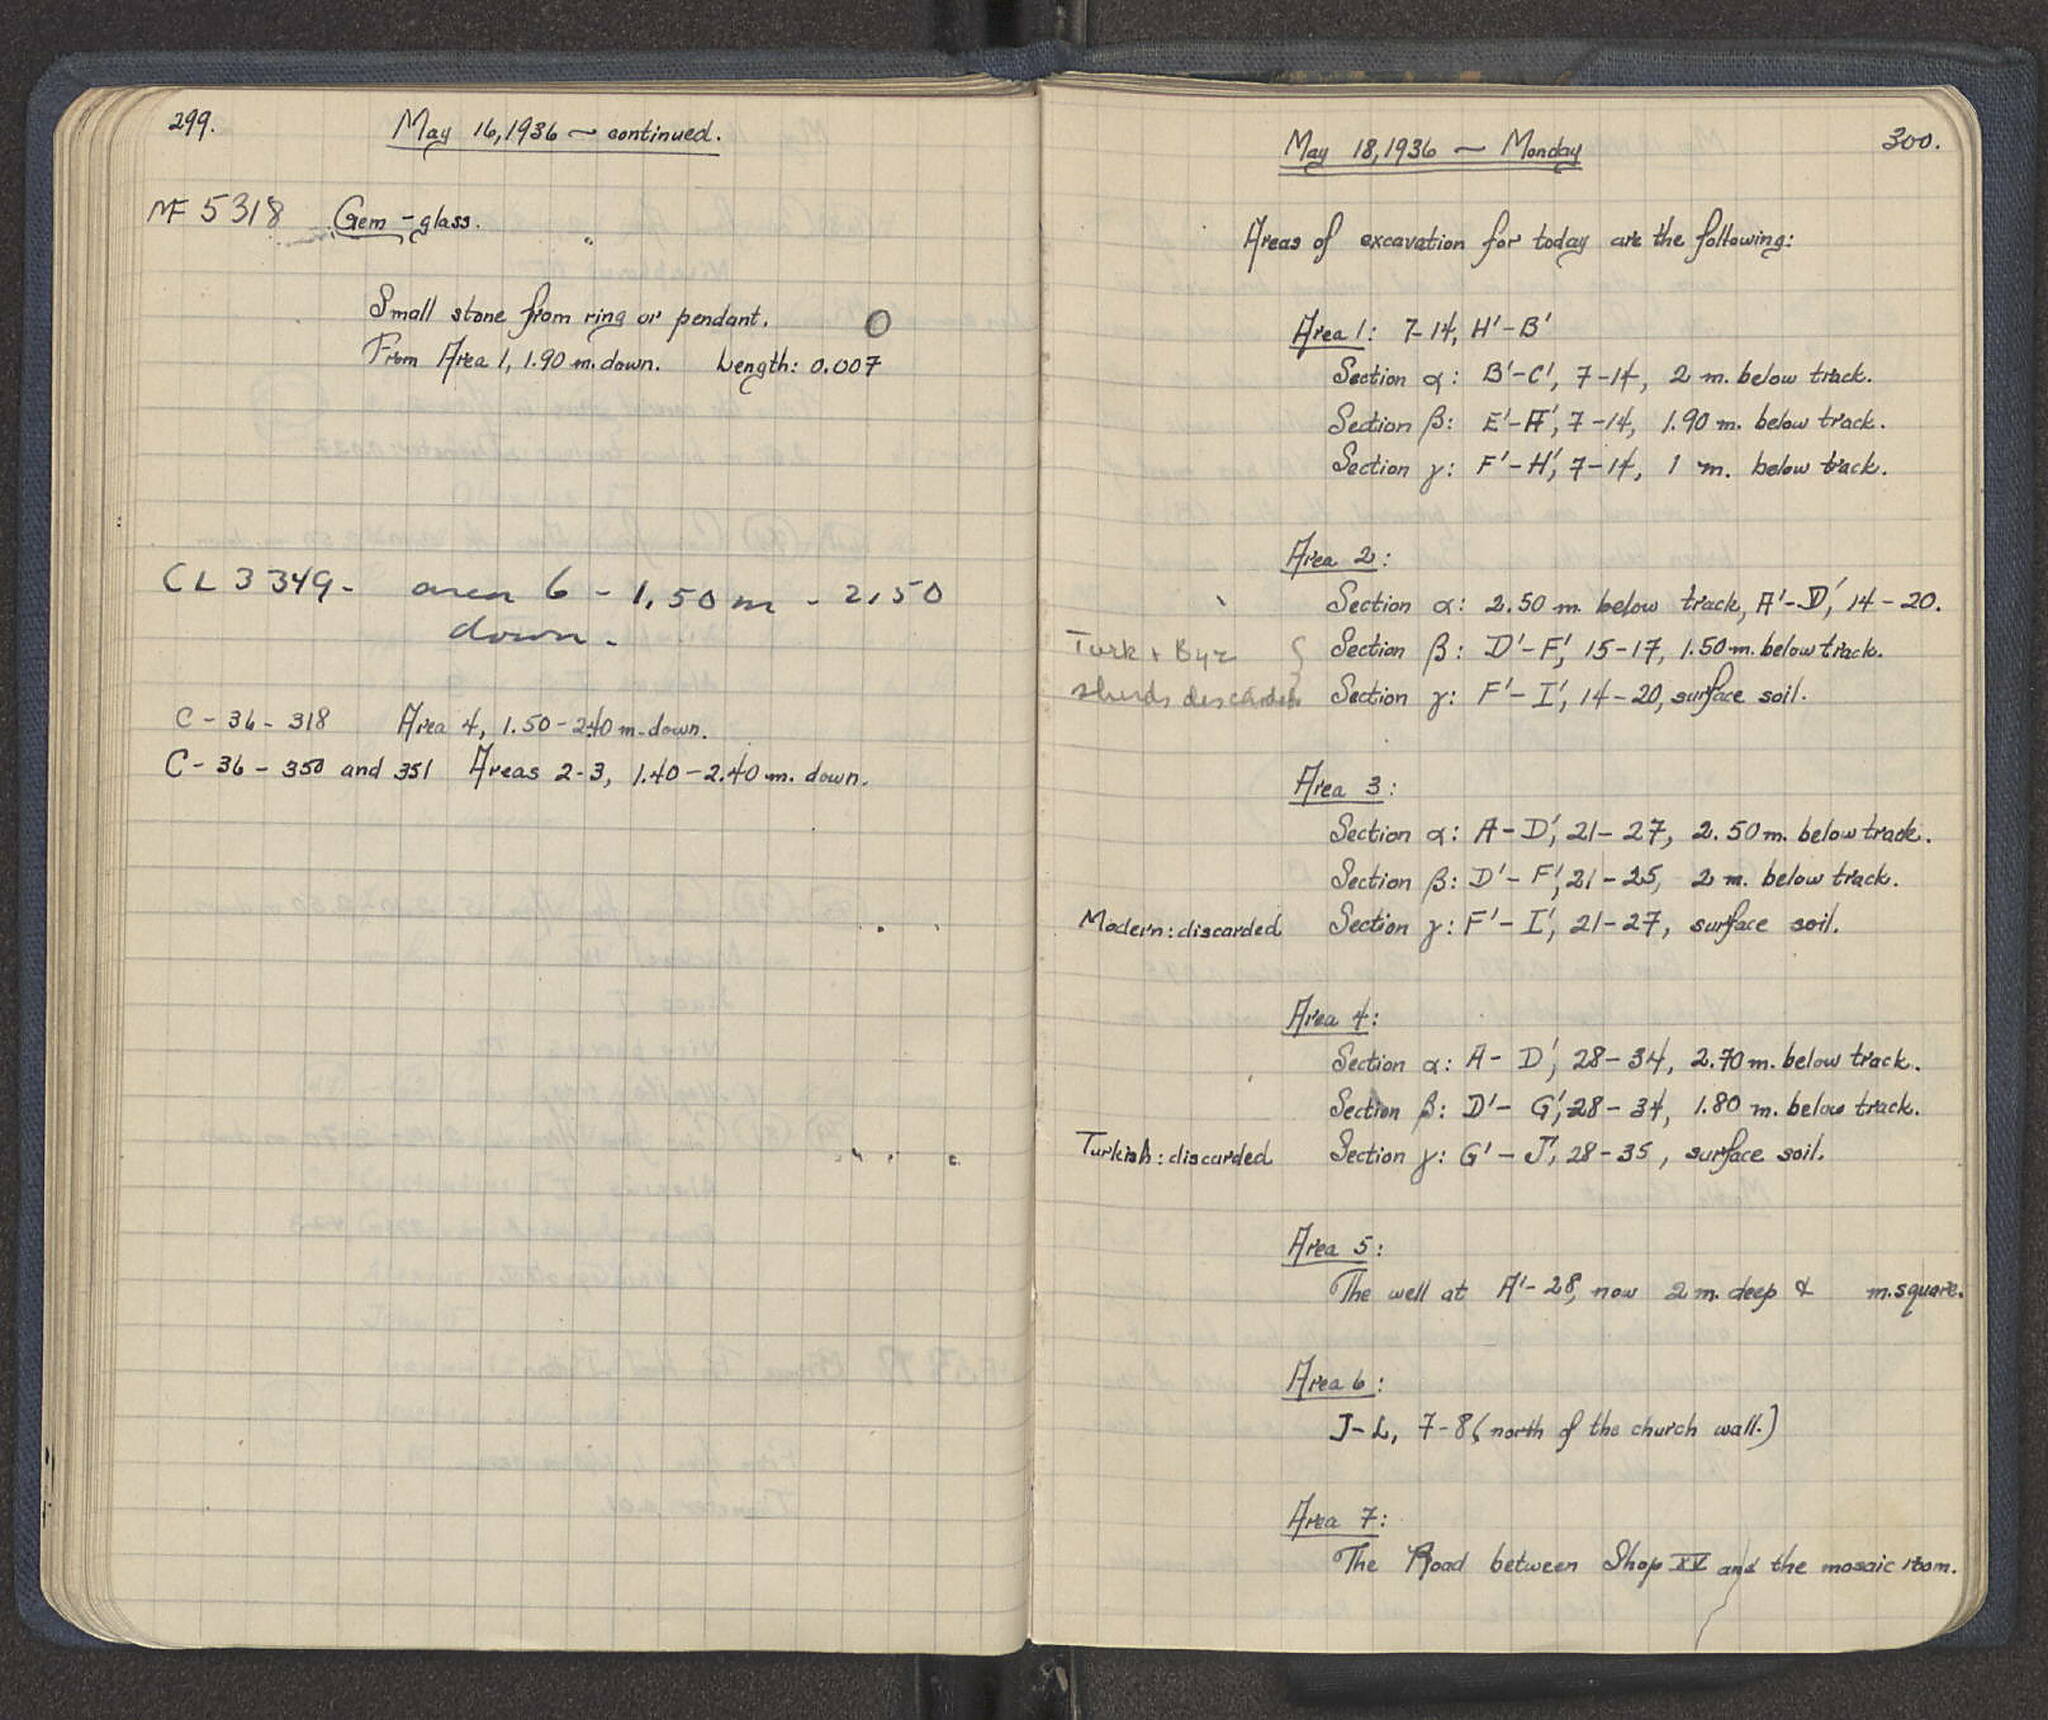 299.
May 16, 1936 ~ continued.
MF 5318 Gem - glass.
Small stone from ring or pendant.
From Area 1, 1.90 m. down. Length: 0.007
CL 3349 - area 6 - 1.50 m - 2.50
down.
C - 36 - 318 Area 4, 1.50 - 2.40 m. down.
C - 36 - 350 and 351 Areas 2-3, 1.40 - 2.40 m. down.
300.
May 18, 1936 ~ Monday
Areas of excavation for today are the following:
Area 1: 7-14, H' - B'
Section α: B' - C', 7-14, 2 m. below track.
Section β: E' - A', 7-14, 1.90 m. below track.
Section γ: F' - H', 7-14, 1 m. below track.
Area 2:
Section α: 2.50 m. below track, A' - D', 14-20.
Turk + Byz Section β: D' - F', 15-17, 1.50 m. below track.
sherds discarded Section γ: F' - I', 14-20, surface soil.
Area 3:
Section α: A - D', 21-27, 2.50 m. below track.
Section β: D' - F', 21-25, 2 m. below track.
Modern: discarded Section γ: F' - I', 21-27, surface soil.
Area 4:
Section α: A - D', 28-34, 2.70 m. below track.
Section β: D' - G', 28-34, 1.80 m. below track.
Turkish: discarded Section γ: G' - J', 28-35, surface soil.
Area 5:
The well at A'-28, now 2 m. deep & m. square.
Area 6:
J-L, 7-8 (north of the church wall.)
Area 7:
The Road between Shop XV and the mosaic room.